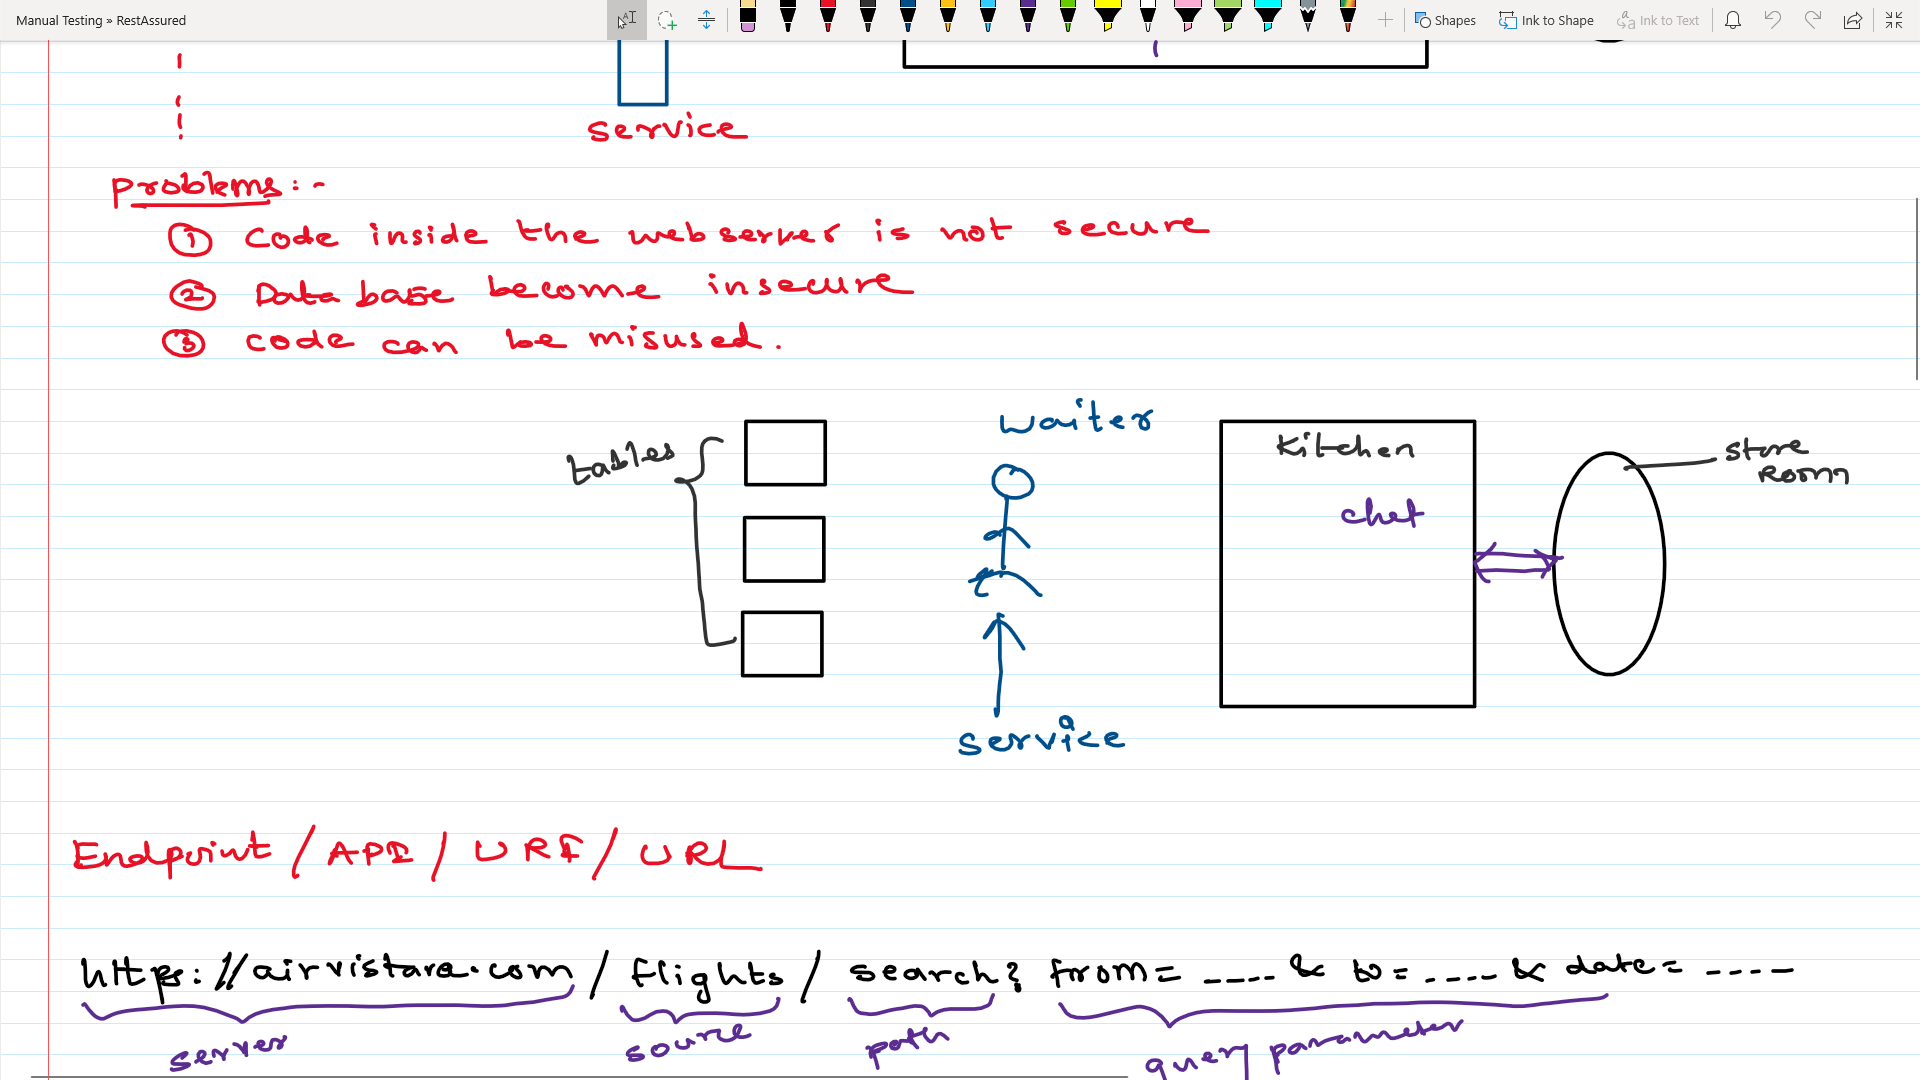 Manual Testing » RestAssured
Shapes
Ink to Shape
Ink to Text
service
Problems :-
① Code inside the webserver is not secure
② Database become insecure
③ code can be misused.
tables
waiter
Kitchen
chef
store
Room
service
Endpoint / API / URI / URL
https://airvistara.com / flights / search? from= ---- & to= ---- & date= ----
server
source
path
query parameter